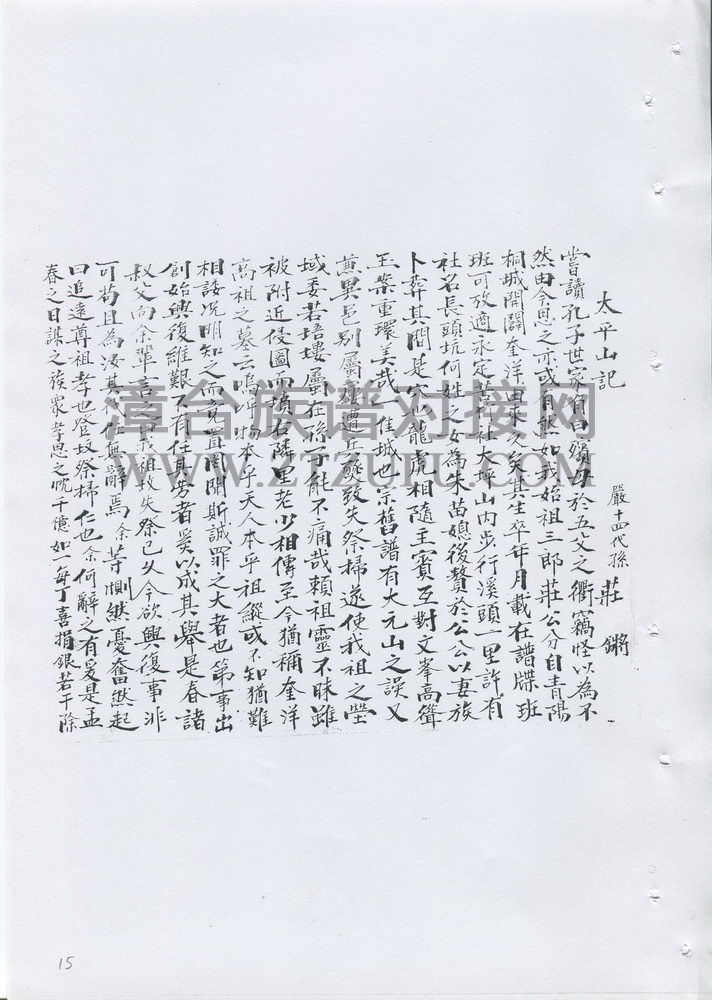 太平山記
嚴十四代孫 莊鏘
嘗讀孔子世家有曰殯母於五父之衢竊怪以為不
然由今思之亦或有然如我始祖三郎莊公分自青陽
桐城開闢奎洋由來久矣其生卒年月載在譜牒班
班可攷適永定苦竹社大坪山內步行溪頭一里許有
社名長頭坑何姓之女為朱苗媳後贅於公公以妻族
卜葬其間是穴也龍虎相隨主賓互對文峯高聳
玉案重環美哉一佳城也宗舊譜有大元山之誤又
兼異邑別屬 遭丘 致失祭掃遂使我祖之塋
域委若培塿屬在孫子能不痛哉賴祖靈不昧雖
被附近侵圖而墳右隣里老少相傳至今猶稱奎洋
高祖之墓云嗚呼物本乎天人本乎祖縱或不知猶難
相諉况明知之而竟置罔聞斯誠罪之大者也第事出
創始興復維艱不有任其劳者奚以成其舉是春諸
叔父向余輩言之曰我祖墳失祭已久今欲興復事非
可苟且為汝其代任無辭焉余等惻然憂奮然起
曰追遠尊祖孝也登坟祭掃仁也余何辭之有爰是孟
春之日謀之族眾孝思之忱千億如一每丁喜捐銀若干除
漳台族谱对接网
WWW.ZTZUPU.COM
15